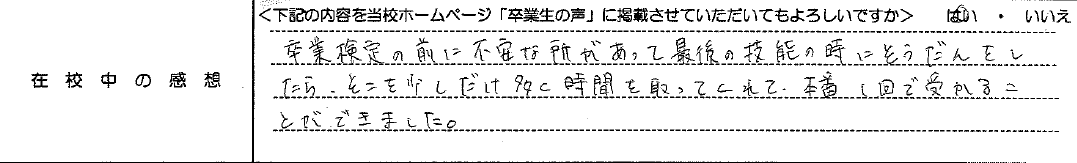 <下記の内容を当校ホームページ「卒業生の声」に掲載させていただいてもよろしいですか> はい ・ いいえ
在校中の感想
卒業検定の前に不安な所があって最後の技能の時にそうだんをし
たら、そこを少しだけ多く時間を取ってくれて、本番1回で受かるこ
とができました。